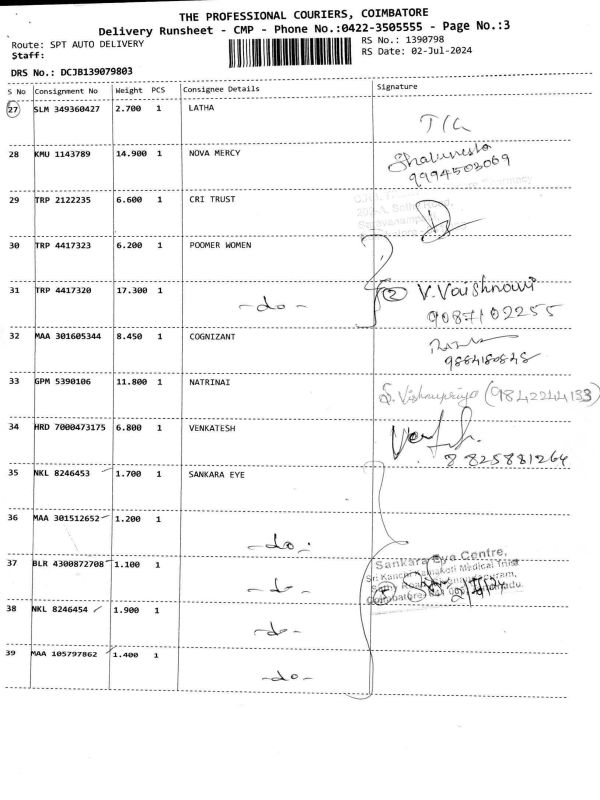 THE PROFESSIONAL COURIERS, COIMBATORE
Delivery Runsheet - CMP - Phone No.:0422-3505555 - Page No.:3
Route: SPT AUTO DELIVERY
RS No.: 1390798
Staff:
RS Date: 02-Jul-2024
DRS No.: DCJB139079803
S No Consignment No Weight PCS Consignee Details Signature
27 SLM 349360427 2.700 1 LATHA
28 KMU 1143789 14.900 1 NOVA MERCY
9994503069
29 TRP 2122235 6.600 1 CRI TRUST
30 TRP 4417323 6.200 1 POOMER WOMEN
31 TRP 4417320 17.300 1 -do- (2) V. Vaishnavi
9087102255
32 MAA 301605344 8.450 1 COGNIZANT
33 GPM 5390106 11.800 1 NATRINAI S. Vishnupriya (9842244133)
34 HRD 7000473175 6.800 1 VENKATESH
8825881264
35 NKL 8246453 1.700 1 SANKARA EYE
36 MAA 301512652 1.200 1 -do-
37 BLR 4300872708 1.100 1 -do-
Sankara Eye Centre,
Sri Kanchi Kamakoti Medical Trust
38 NKL 8246454 1.900 1 -do-
39 MAA 105797862 1.400 1 -do-